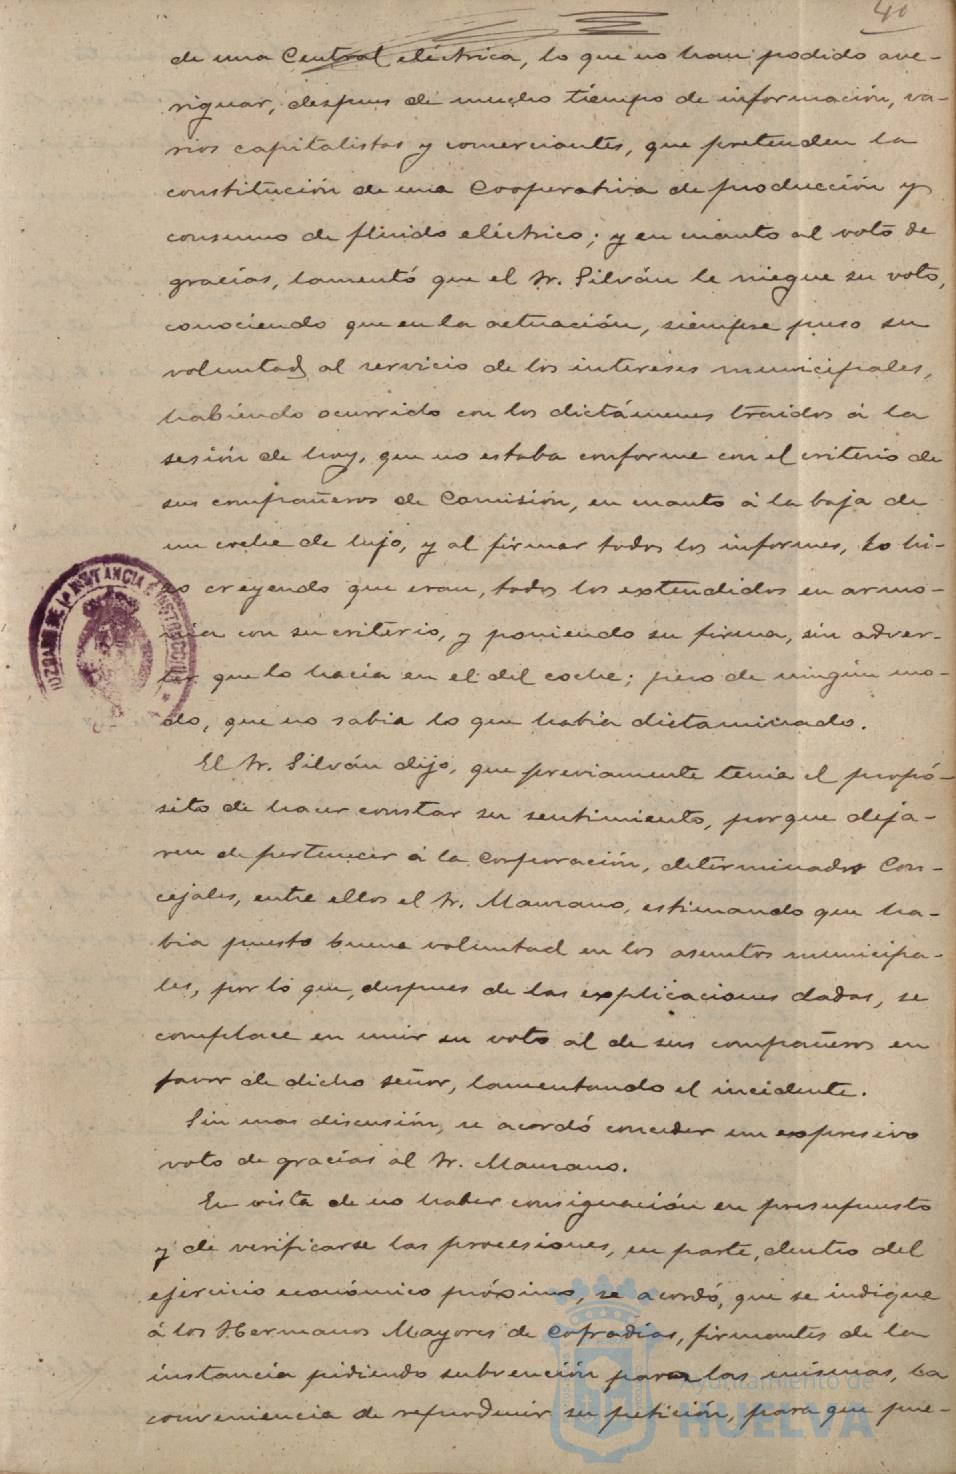 40
de una Central eléctrica, lo que no han podido ave-
riguar, despues de mucho tiempo de información, va-
rios capitalistas y comerciantes, que pretenden la
constitución de una Cooperativa de producción y
consumo de fluido eléctrico; y en cuanto al voto de
gracias, lamentó que el Sr. Silván le niegue su voto,
conociendo que en la actuación, siempre puso su
voluntad al servicio de los intereses municipales,
habiendo ocurrido con los dictámenes traidos á la
sesión de hoy, que no estaba conforme con el criterio de
sus compañeros de Comisión, en cuanto á la baja de
un coche de lujo, y al firmar todos los informes, lo hi-
zo creyendo que eran, todos los extendidos en armo-
nia con su criterio, y poniendo su firma, sin adver-
tir que lo hacia en el del coche; pero de ningún mo-
do, que no sabia lo que habia dictaminado.
El Sr. Silván dijo, que previamente tenia el propó-
sito de hacer constar su sentimiento, porque deja-
ren de pertenecer á la Corporación, determinados Con-
cejales, entre ellos el Sr. Manzano, estimando que ha-
bia puesto buena voluntad en los asuntos municipa-
les, por lo que, despues de las explicaciones dadas, se
complace en unir su voto al de sus compañeros en
favor de dicho señor, lamentando el incidente.
Sin mas discusión, se acordó conceder un expresivo
voto de gracias al Sr. Manzano.
En vista de no haber consignación en presupuesto
y de verificarse las procesiones, en parte, dentro del
ejercicio económico próximo, se acordó, que se indique
á los Hermanos Mayores de Cofradias, firmantes de la
instancia pidiendo subvención para las mismas, la
conveniencia de reproducir su petición, para que pue-
JUZGADO DE 1ª INSTANCIA É INSTRUCCION
Ayuntamiento de
HUELVA